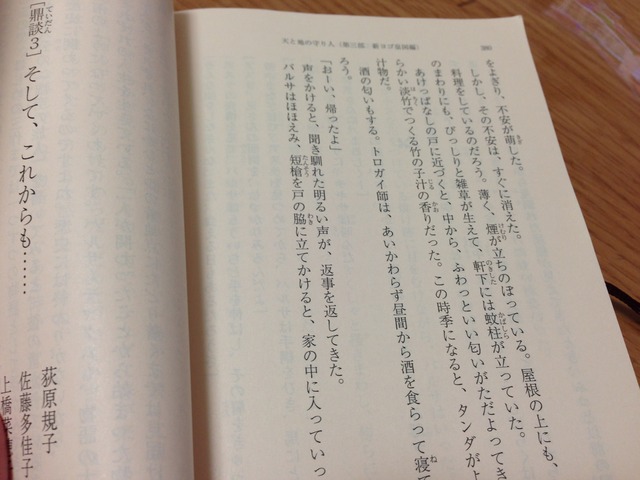 天と地の守り人〈第三部 新ヨゴ皇国編〉
380
をよぎり、不安が萌した。
しかし、その不安は、すぐに消えた。
料理をしているのだろう。薄く、煙が立ちのぼっている。屋根の上にも、
のまわりにも、びっしりと雑草が生えて、軒下には蚊柱が立っていた。
あけっぱなしの戸に近づくと、中から、ふわっといい匂いがただよってき
らかい淡竹でつくる竹の子汁の香りだった。この時季になると、タンダがよ
汁物だ。
酒の匂いもする。トロガイ師は、あいかわらず昼間から酒を食らって寝て
ろう。
「おーい、帰ったよ」
声をかけると、聞き馴れた明るい声が、返事を返してきた。
バルサはほほえみ、短槍を戸の脇に立てかけると、家の中に入っていっ
［鼎談３］そして、これからも……
荻原規子
佐藤多佳子
上橋菜